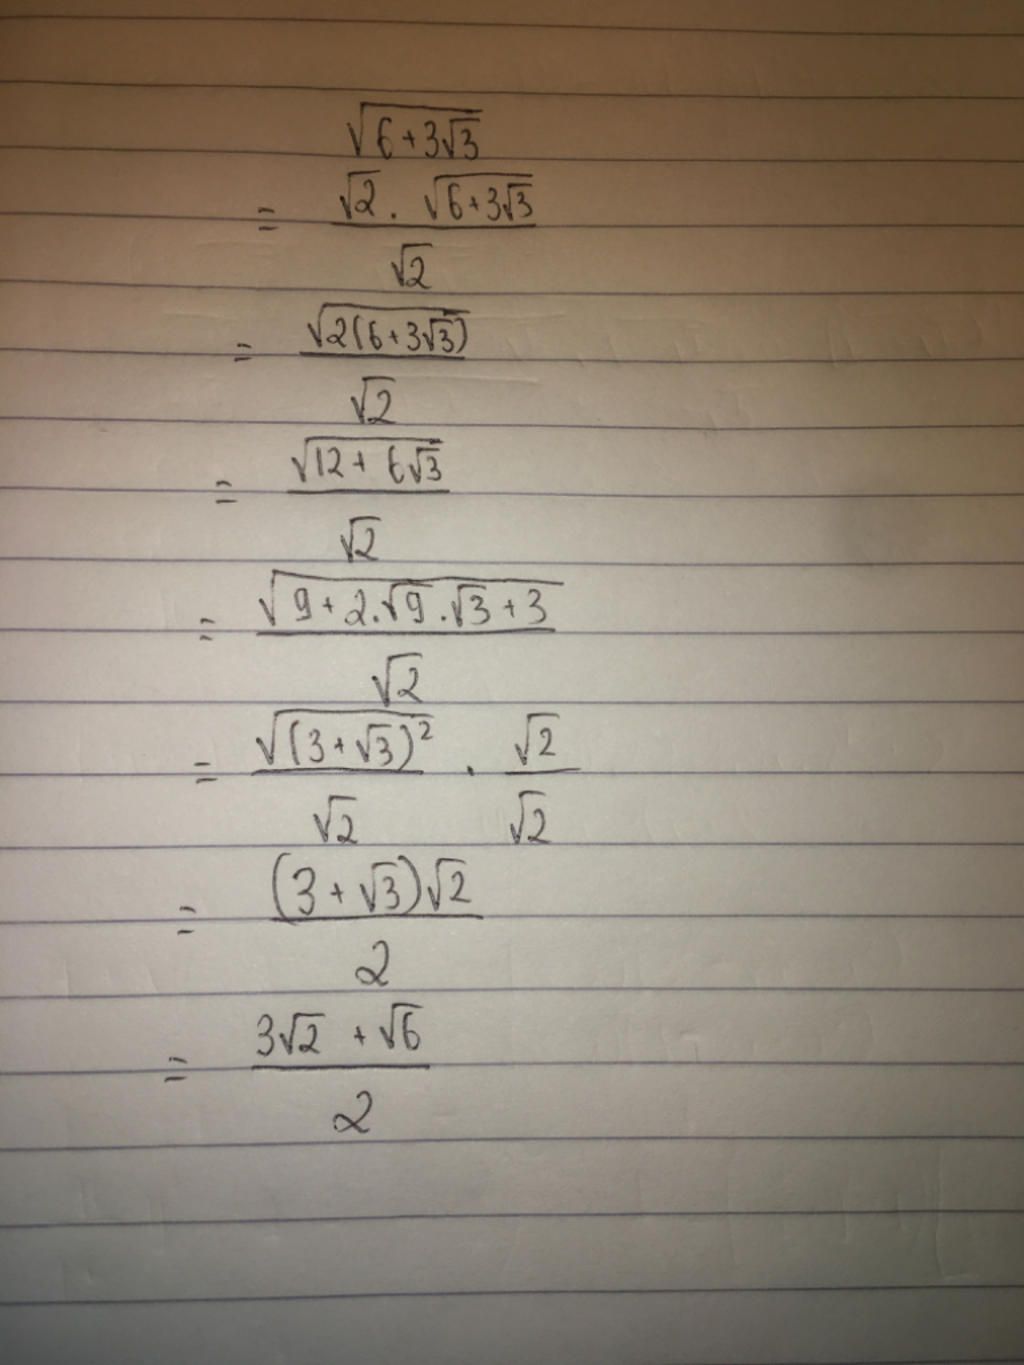 √(6+3√3)
= (√2 . √(6+3√3)) / √2
= √(2(6+3√3)) / √2
= √(12+6√3) / √2
= √(9+2.√9.√3+3) / √2
= √((3+√3)²) / √2 . √2 / √2
= (3+√3)√2 / 2
= (3√2 + √6) / 2